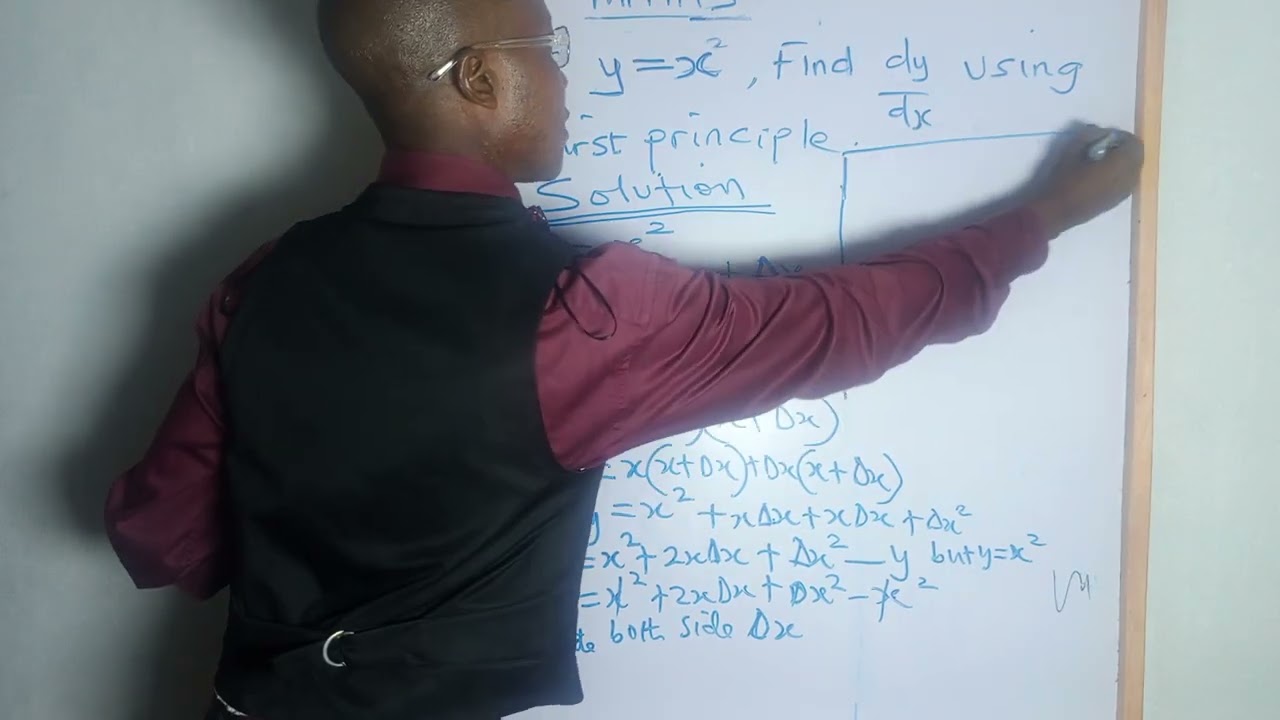 MATHS
y = x², Find dy/dx using
principle.
Solution
²
+ Δx
+ Δx)
= x(x+Δx)+Δx(x+Δx)
y = x² + xΔx + xΔx + Δx²
= x² + 2xΔx + Δx² – y but y = x²
= x² + 2xΔx + Δx² – x²
both side Δx